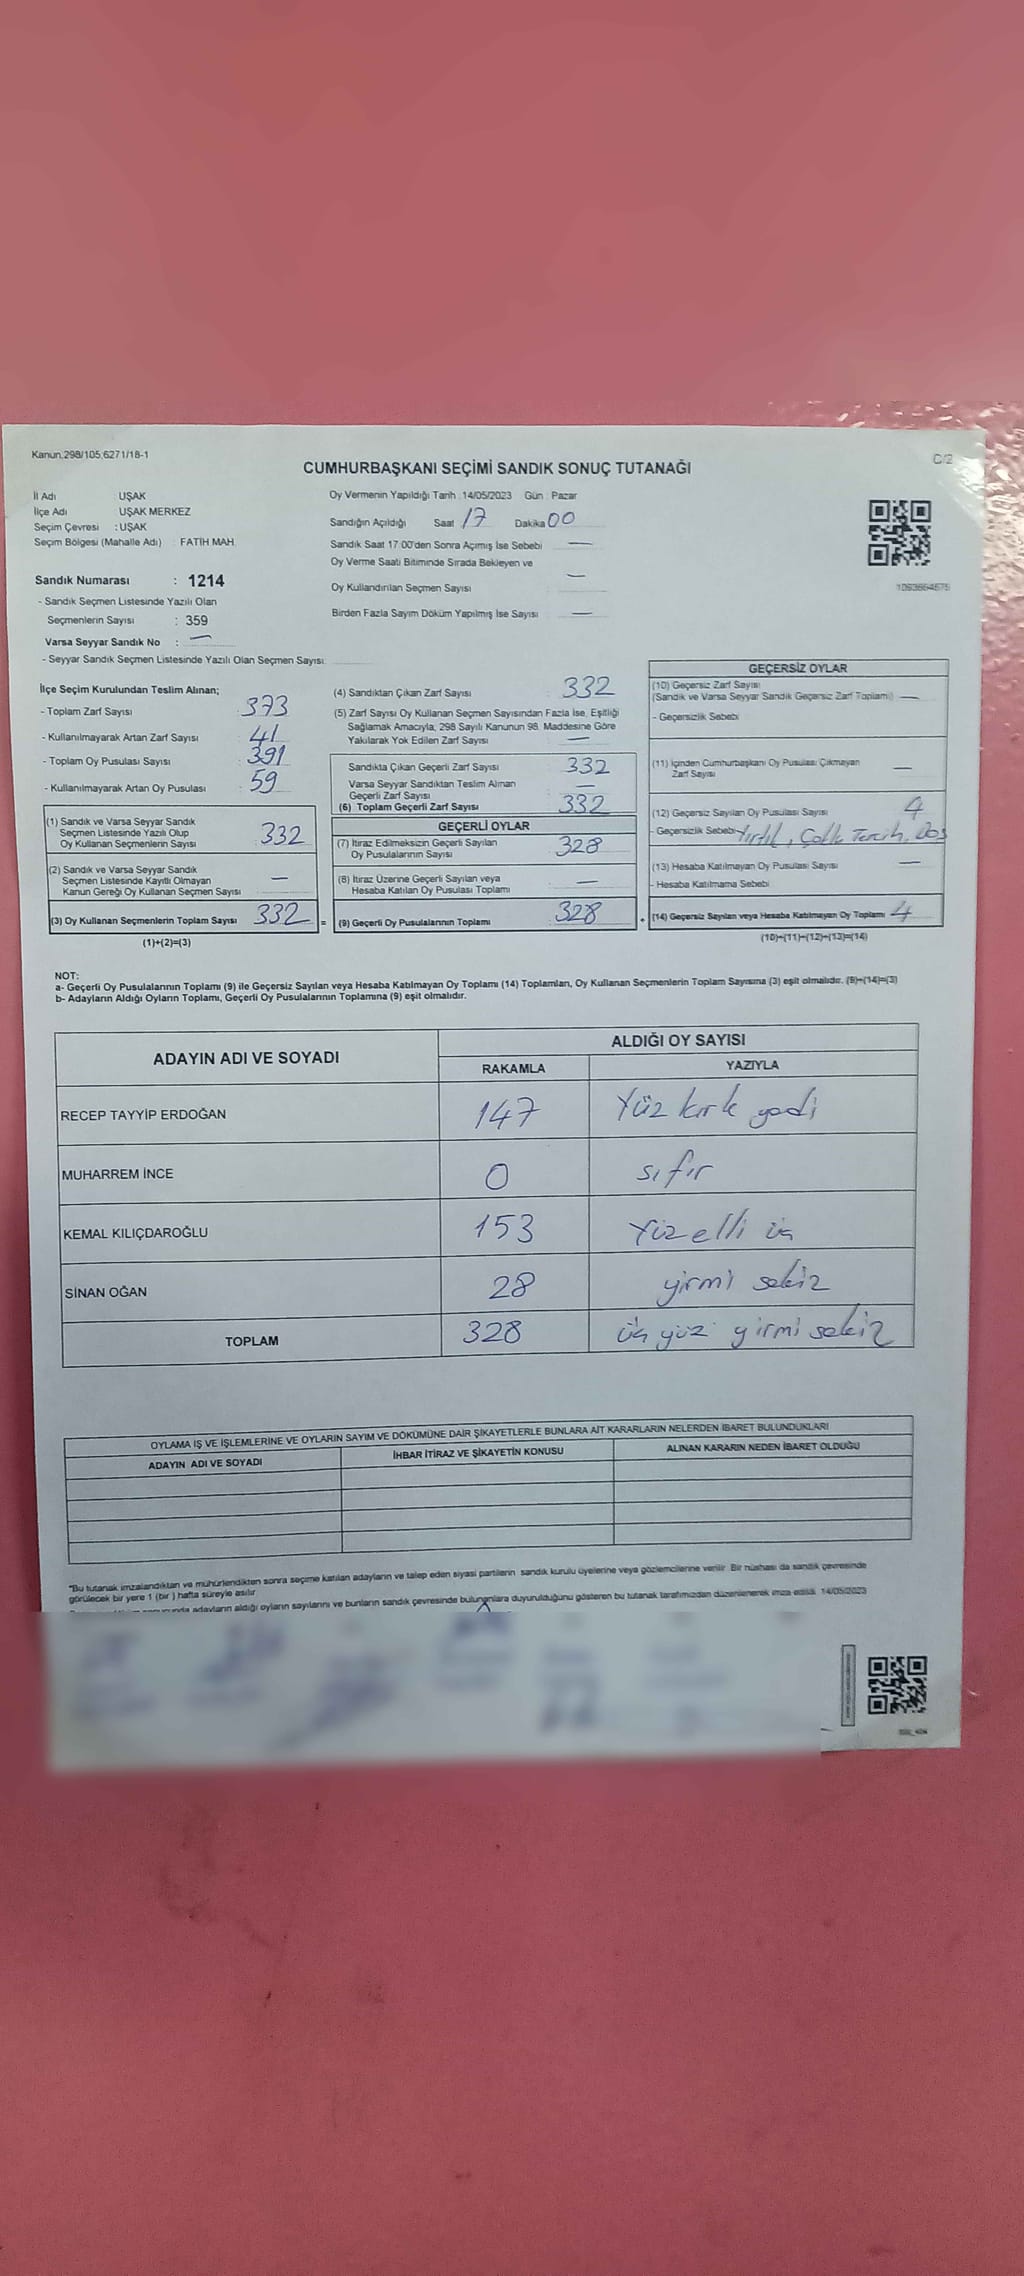 Kanun,298/105;6271/18-1
C/2
CUMHURBAŞKANI SEÇİMİ SANDIK SONUÇ TUTANAĞI
İl Adı : UŞAK
İlçe Adı : UŞAK MERKEZ
Seçim Çevresi : UŞAK
Seçim Bölgesi (Mahalle Adı) : FATİH MAH.
Sandık Numarası : 1214
- Sandık Seçmen Listesinde Yazılı Olan
Seçmenlerin Sayısı : 359
Varsa Seyyar Sandık No : —
- Seyyar Sandık Seçmen Listesinde Yazılı Olan Seçmen Sayısı:
Oy Vermenin Yapıldığı Tarih : 14/05/2023 Gün : Pazar
Sandığın Açıldığı Saat 17 Dakika 00
Sandık Saat 17:00'den Sonra Açımış İse Sebebi —
Oy Verme Saati Bitiminde Sırada Bekleyen ve
Oy Kullandırılan Seçmen Sayısı —
Birden Fazla Sayım Döküm Yapılmış İse Sayısı —
1093664675
İlçe Seçim Kurulundan Teslim Alınan;
- Toplam Zarf Sayısı : 373
- Kullanılmayarak Artan Zarf Sayısı : 41
- Toplam Oy Pusulası Sayısı : 391
- Kullanılmayarak Artan Oy Pusulası : 59
(1) Sandık ve Varsa Seyyar Sandık
Seçmen Listesinde Yazılı Olup
Oy Kullanan Seçmenlerin Sayısı : 332
(2) Sandık ve Varsa Seyyar Sandık
Seçmen Listesinde Kayıtlı Olmayan
Kanun Gereği Oy Kullanan Seçmen Sayısı —
(3) Oy Kullanan Seçmenlerin Toplam Sayısı 332 =
(1)+(2)=(3)
(4) Sandıktan Çıkan Zarf Sayısı : 332
(5) Zarf Sayısı Oy Kullanan Seçmen Sayısından Fazla İse, Eşitliği
Sağlamak Amacıyla, 298 Sayılı Kanunun 98. Maddesine Göre
Yakılarak Yok Edilen Zarf Sayısı : —
Sandıkta Çıkan Geçerli Zarf Sayısı : 332
Varsa Seyyar Sandıktan Teslim Alınan
Geçerli Zarf Sayısı : —
(6) Toplam Geçerli Zarf Sayısı : 332
GEÇERLİ OYLAR
(7) İtiraz Edilmeksizin Geçerli Sayılan
Oy Pusulalarının Sayısı : 328
(8) İtiraz Üzerine Geçerli Sayılan veya
Hesaba Katılan Oy Pusulası Toplamı : —
(9) Geçerli Oy Pusulalarının Toplamı : 328 +
GEÇERSİZ OYLAR
(10) Geçersiz Zarf Sayısı
(Sandık ve Varsa Seyyar Sandık Geçersiz Zarf Toplamı) —
- Geçersizlik Sebebi
(11) İçinden Cumhurbaşkanı Oy Pusulası Çıkmayan
Zarf Sayısı —
(12) Geçersiz Sayılan Oy Pusulası Sayısı 4
- Geçersizlik Sebebi Yırtık, Çoklu Tercih, Boş
(13) Hesaba Katılmayan Oy Pusulası Sayısı —
- Hesaba Katılmama Sebebi
(14) Geçersiz Sayılan veya Hesaba Katılmayan Oy Toplamı 4
(10)+(11)+(12)+(13)=(14)
NOT:
a- Geçerli Oy Pusulalarının Toplamı (9) ile Geçersiz Sayılan veya Hesaba Katılmayan Oy Toplamı (14) Toplamları, Oy Kullanan Seçmenlerin Toplam Sayısına (3) eşit olmalıdır. (9)+(14)=(3)
b- Adayların Aldığı Oyların Toplamı, Geçerli Oy Pusulalarının Toplamına (9) eşit olmalıdır.
ADAYIN ADI VE SOYADI
ALDIĞI OY SAYISI
RAKAMLA YAZIYLA
RECEP TAYYİP ERDOĞAN 147 Yüz kırk yedi
MUHARREM İNCE 0 sıfır
KEMAL KILIÇDAROĞLU 153 Yüz elli üç
SİNAN OĞAN 28 yirmi sekiz
TOPLAM 328 üç yüz yirmi sekiz
OYLAMA İŞ VE İŞLEMLERİNE VE OYLARIN SAYIM VE DÖKÜMÜNE DAİR ŞİKAYETLERLE BUNLARA AİT KARARLARIN NELERDEN İBARET BULUNDUKLARI
ADAYIN ADI VE SOYADI İHBAR İTİRAZ VE ŞİKAYETİN KONUSU ALINAN KARARIN NEDEN İBARET OLDUĞU
*Bu tutanak imzalandıktan ve mühürlendikten sonra seçime katılan adayların ve talep eden siyasi partilerin sandık kurulu üyelerine veya gözlemcilerine verilir. Bir nüshası da sandık çevresinde
görülecek bir yere 1 (bir ) hafta süreyle asılır.
adayların aldığı oyların sayılarını ve bunların sandık çevresinde bulunanlara duyurulduğunu gösteren bu tutanak tarafımızdan düzenlenerek imza edildi. 14/05/2023